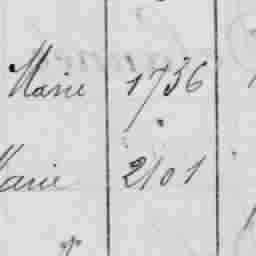 Marie 1736
Marie 2101